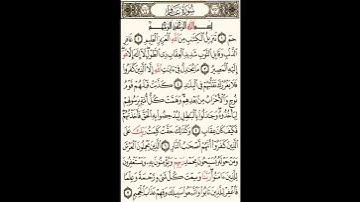 سورة غافر
بسم الله الرحمن الرحيم
حم ١ تنزيل الكتب من الله العزيز العليم ٢ غافر
الذنب وقابل التوب شديد العقاب ذي الطول لا إله إلا هو
إليه المصير ٣ ما يجدل في ءايت الله إلا الذين كفروا
فلا يغررك تقلبهم في البلد ٤ كذبت قبلهم قوم
نوح والأحزاب من بعدهم وهمت كل أمة برسولهم
ليأخذوه وجدلوا بالبطل ليدحضوا به الحق فأخذتهم
فكيف كان عقاب ٥ وكذلك حقت كلمت ربك على
الذين كفروا أنهم أصحب النار ٦ الذين يحملون العرش
ومن حوله يسبحون بحمد ربهم ويؤمنون به ويستغفرون
للذين ءامنوا ربنا وسعت كل شيء رحمة وعلما
فاغفر للذين تابوا واتبعوا سبيلك وقهم عذاب الجحيم ٧